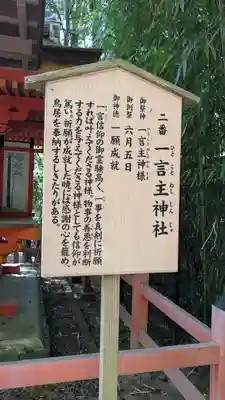 二番 一言主神社
ひとことぬしじんじゃ
御祭神 一言主神様
御例祭 六月五日
御神徳 一願成就
一言信仰の御霊験高く、一事を真剣に祈願
すれば叶えてくださる神様、物事の善悪を判断
する力を与えてくださる神様としても信仰が
篤い。祈願が成就した暁には感謝の心を籠め、
鳥居を奉納するしきたりがある。